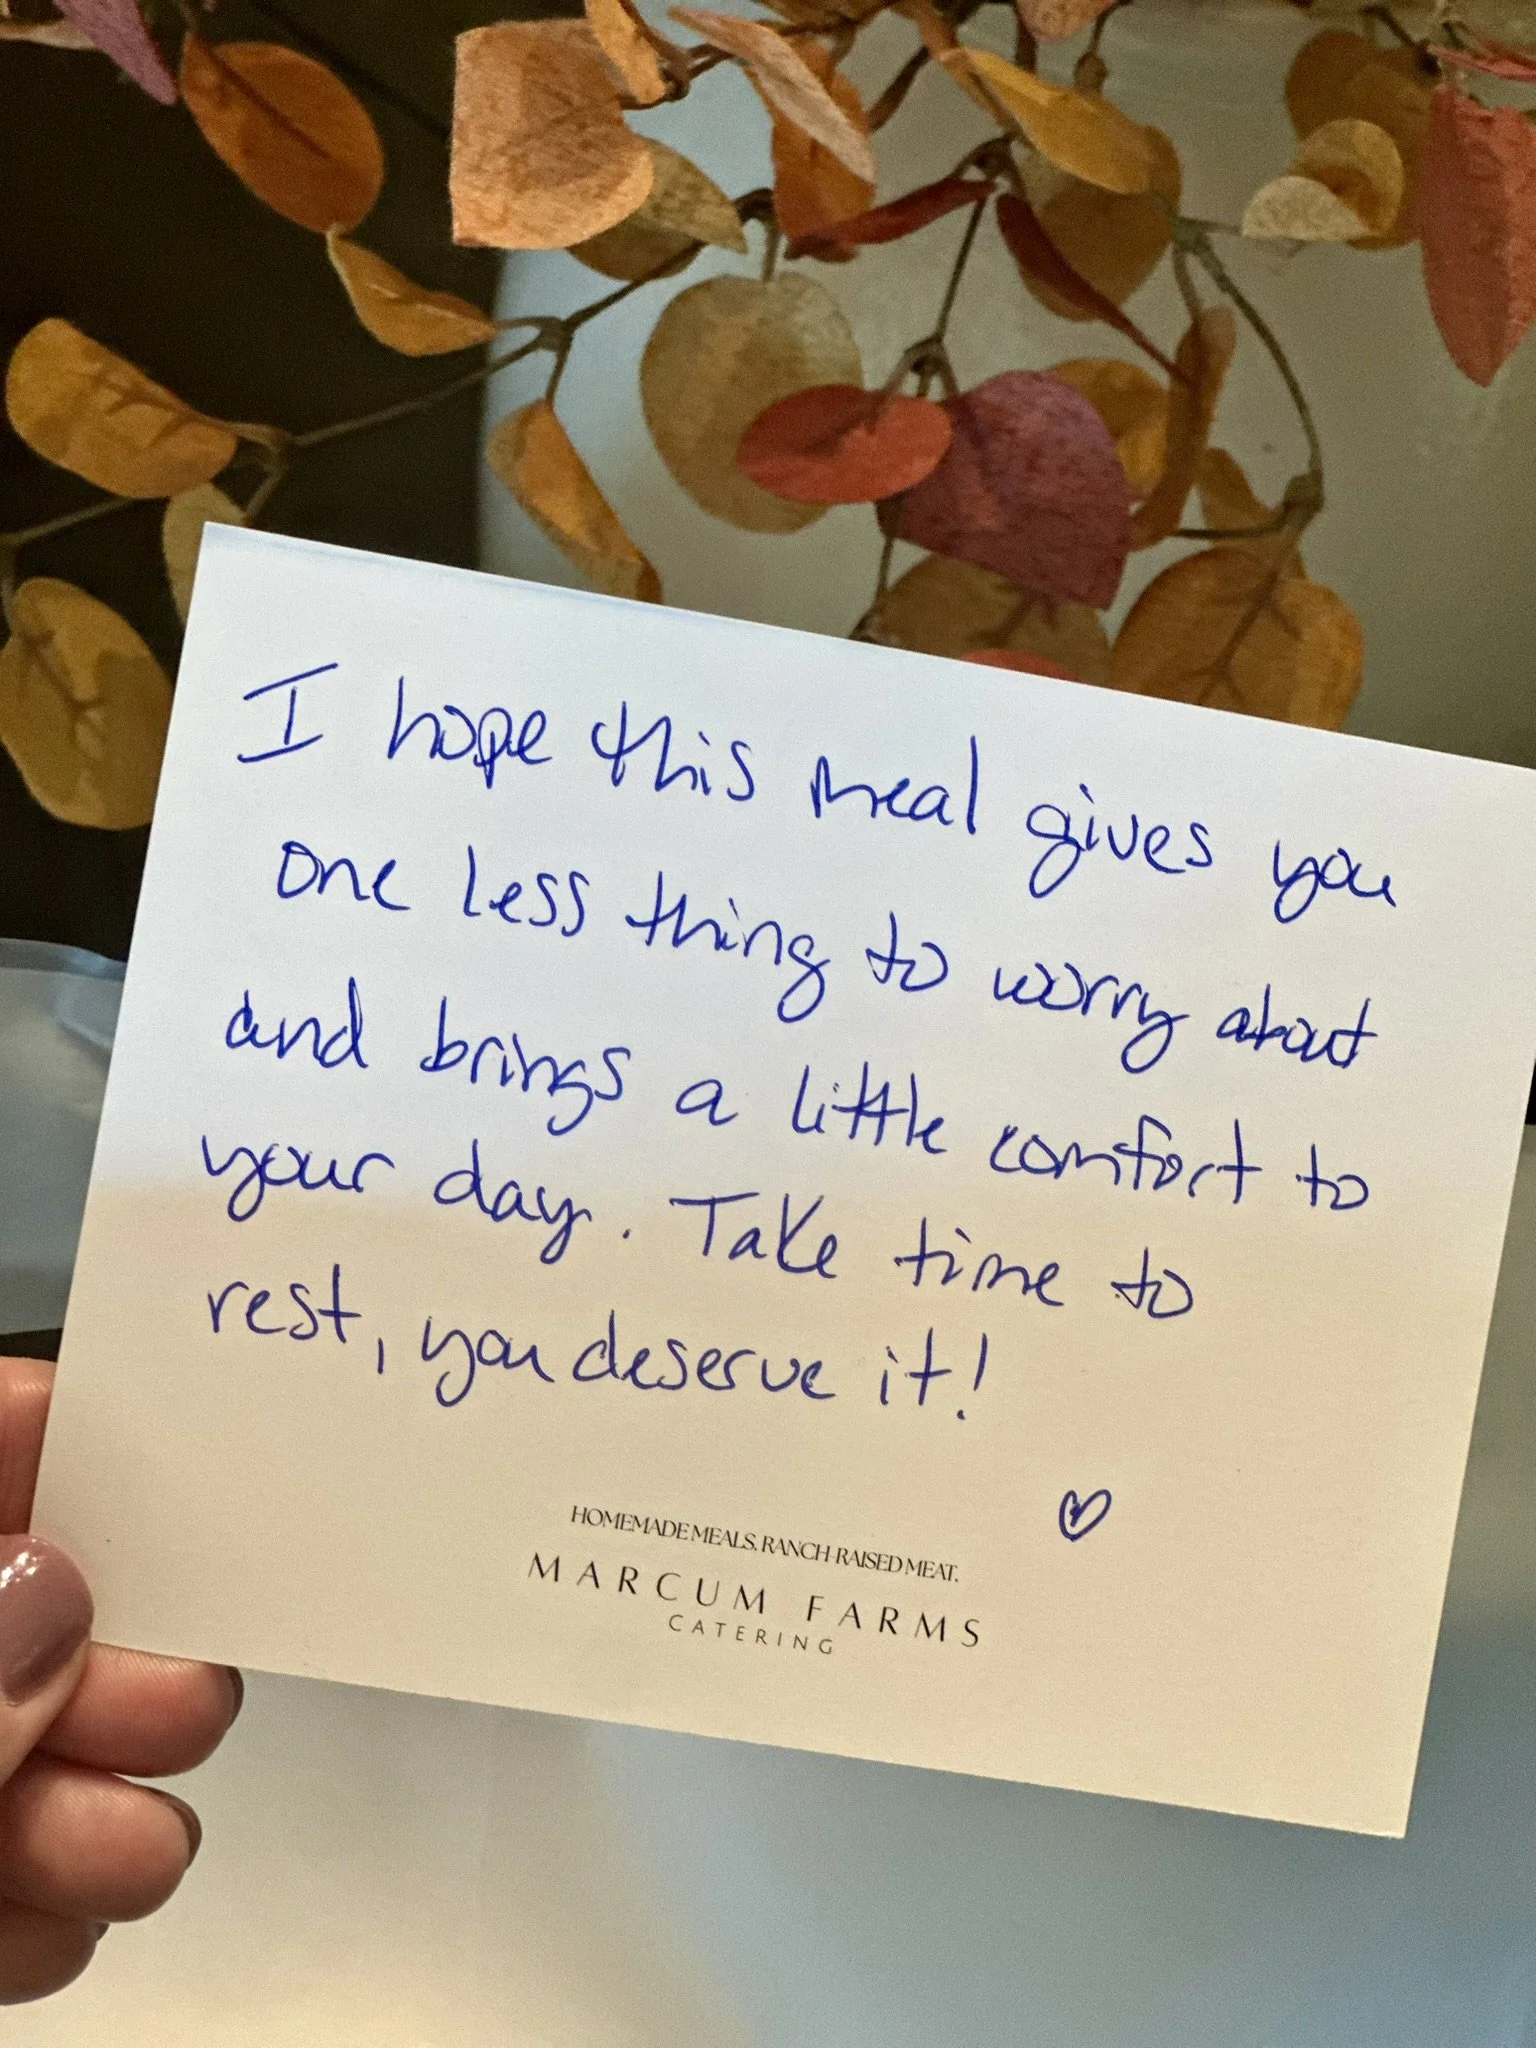 I hope this meal gives you
one less thing to worry about
and brings a little comfort to
your day. Take time to
rest, you deserve it!
♡
HOMEMADE MEALS. RANCH-RAISED MEAT.
MARCUM FARMS
CATERING